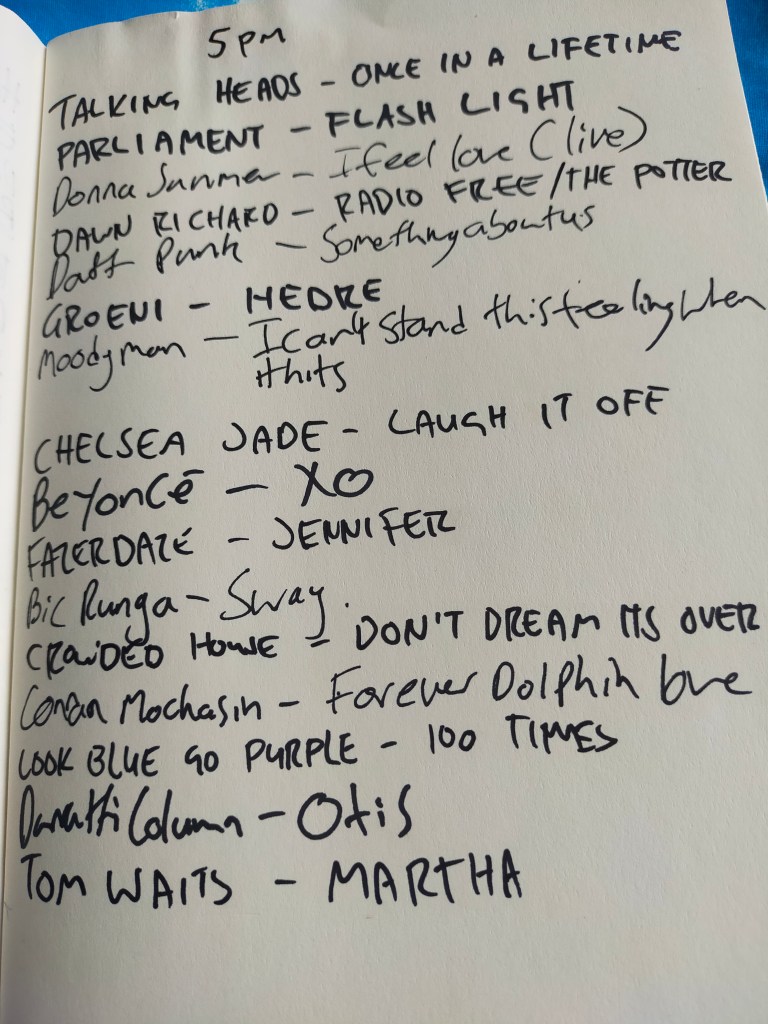 5 PM
TALKING HEADS - ONCE IN A LIFETIME
PARLIAMENT - FLASH LIGHT
Donna Summer - I feel love (live)
DAWN RICHARD - RADIO FREE / THE POTTER
Daft Punk - Something about us
GROENI - HEDRE
Moodyman - I can't stand this feeling when
it hits
CHELSEA JADE - LAUGH IT OFF
BeYoncé - XO
FAZERDAZE - JENNIFER
Bic Runga - Sway.
CROWDED HOUSE - DON'T DREAM ITS OVER
Conan Mochasin - Forever Dolphin love
LOOK BLUE GO PURPLE - 100 TIMES
Durutti Column - Otis
TOM WAITS - MARTHA